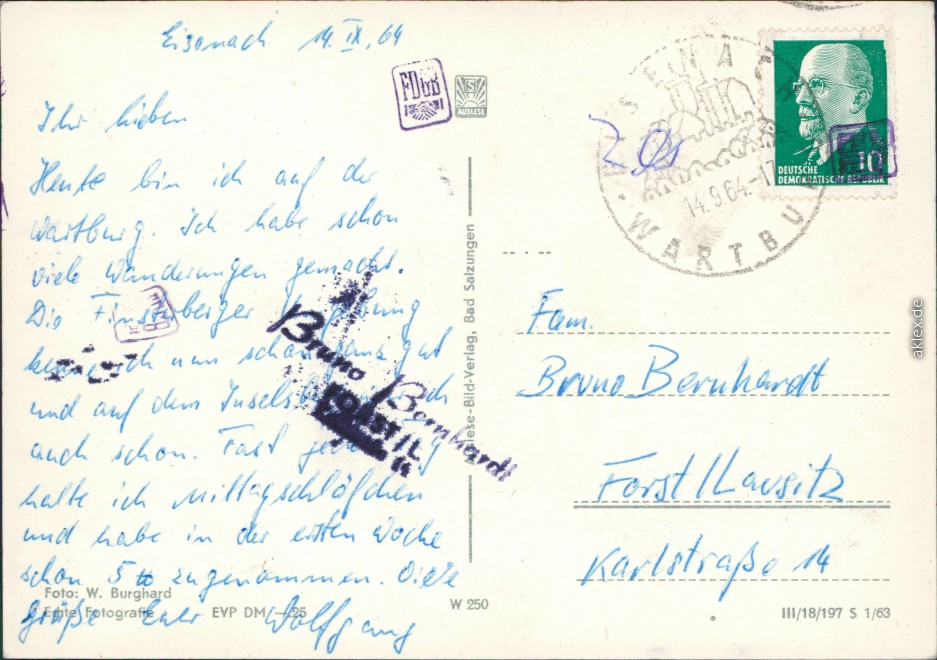 Eisenach 14. IX. 64
Ihr Lieben
Heute bin ich auf der
Wartburg. Ich habe schon
viele Wanderungen gemacht.
Die Finsterberger
ich nun schon ganz gut
und auf dem Inselsberg ich
auch schon. Fast
halte ich Mittagschläfchen
und habe in der ersten Woche
schon 5 ℔ zugenommen. Viele
Grüße Euer Wolfgang
Foto: W. Burghard
Echte Fotografie EVP DM -.25
FDGB
AUSLESE
Auslese-Bild-Verlag, Bad Salzungen
W 250
Bruno Bernhardt
FORST/L.
14
EISENACH
14.9.64.-17
WARTBURG
DEUTSCHE
DEMOKRATISCHE REPUBLIK
10
Fam.
Bruno Bernhardt
Forst/Lausitz
Karlstraße 14
III/18/197 S 1/63
akpool.de